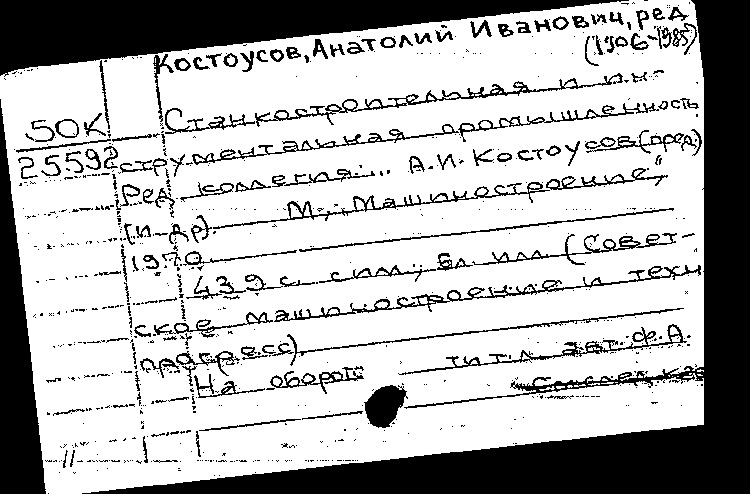 Костоусов, Анатолий Иванович, ред
(1906-1985)
50К
25592
Станкостроительная и ин-
струментальная промышленность
Ред. коллегия:... А.И. Костоусов (пред.)
[и др.]. М., „Машиностроение",
1970.
439 с. с ил.; 6 л. илл. (Совет-
ское машиностроение и техн
прогресс).
На обороте тит. л. авт. ф. А.